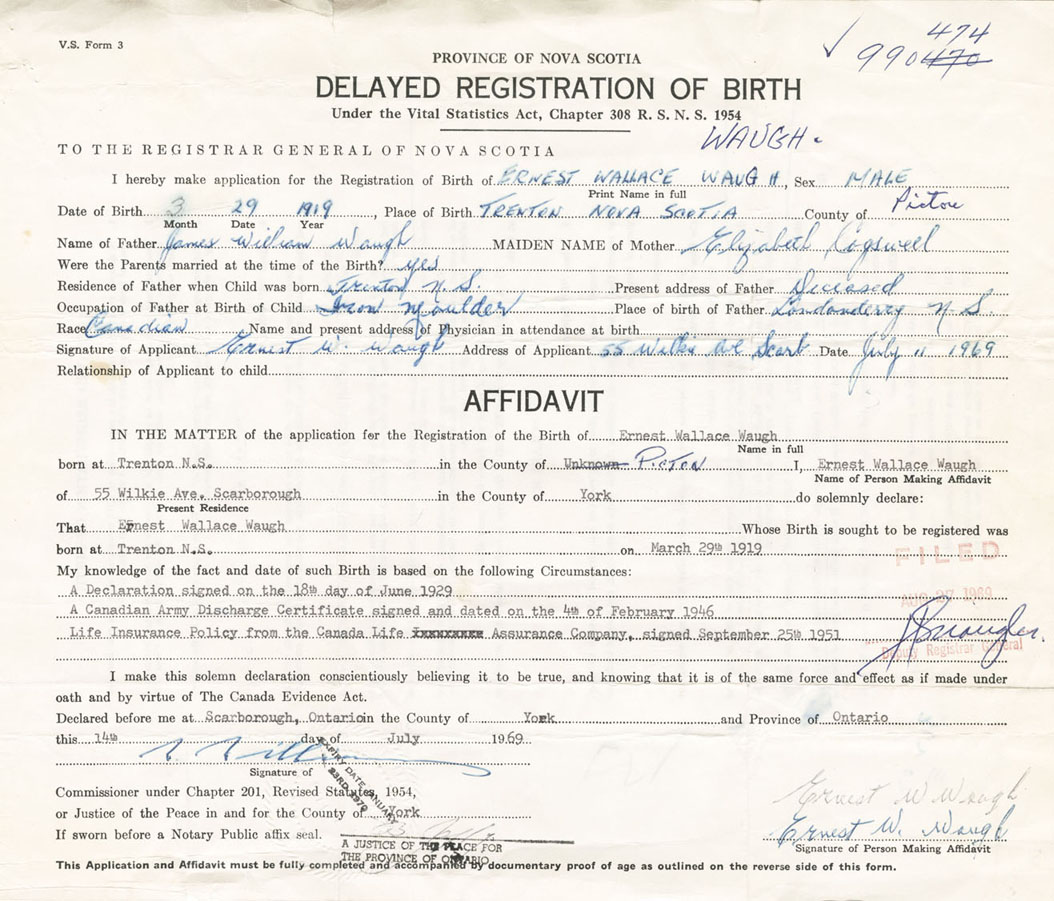 V.S. Form 3
474
990 470
PROVINCE OF NOVA SCOTIA
DELAYED REGISTRATION OF BIRTH
Under the Vital Statistics Act, Chapter 308 R. S. N. S. 1954
WAUGH.
TO THE REGISTRAR GENERAL OF NOVA SCOTIA
I hereby make application for the Registration of Birth of ERNEST WALLACE WAUGH, Sex MALE
Print Name in full
Date of Birth 3 29 1919, Place of Birth TRENTON NOVA SCOTIA County of Pictou
Month Date Year
Name of Father James William Waugh MAIDEN NAME of Mother Elizabeth Cogswell
Were the Parents married at the time of the Birth? yes
Residence of Father when Child was born Trenton N.S. Present address of Father Deceased
Occupation of Father at Birth of Child Iron Moulder Place of birth of Father Londonderry N S.
Race Canadian Name and present address of Physician in attendance at birth
Signature of Applicant Ernest W. Waugh Address of Applicant 55 Wilkie Ave Scarb Date July 11 1969
Relationship of Applicant to child
AFFIDAVIT
IN THE MATTER of the application for the Registration of the Birth of Ernest Wallace Waugh
Name in full
born at Trenton N.S. in the County of Unknown PICTOU I, Ernest Wallace Waugh
Name of Person Making Affidavit
of 55 Wilkie Ave, Scarborough in the County of York do solemnly declare:
Present Residence
That Ernest Wallace Waugh Whose Birth is sought to be registered was
born at Trenton N.S. on March 29th 1919
FILED
My knowledge of the fact and date of such Birth is based on the following Circumstances:
A Declaration signed on the 18th day of June 1929
AUG 27 1969
A Canadian Army Discharge Certificate signed and dated on the 4th of February 1946
Life Insurance Policy from the Canada Life xxxxxxxxx Assurance Company, signed September 25th 1951
Deputy Registrar General
I make this solemn declaration conscientiously believing it to be true, and knowing that it is of the same force and effect as if made under
oath and by virtue of The Canada Evidence Act.
Declared before me at Scarborough, Ontario in the County of York and Province of Ontario
this 14th day of July 1969
Signature of
EXPIRY DATE JANUARY
23RD 1970
Commissioner under Chapter 201, Revised Statutes, 1954,
or Justice of the Peace in and for the County of York
Ernest W Waugh
If sworn before a Notary Public affix seal.
Ernest W. Waugh
A JUSTICE OF THE PEACE FOR
THE PROVINCE OF ONTARIO
Signature of Person Making Affidavit
This Application and Affidavit must be fully completed and accompanied by documentary proof of age as outlined on the reverse side of this form.